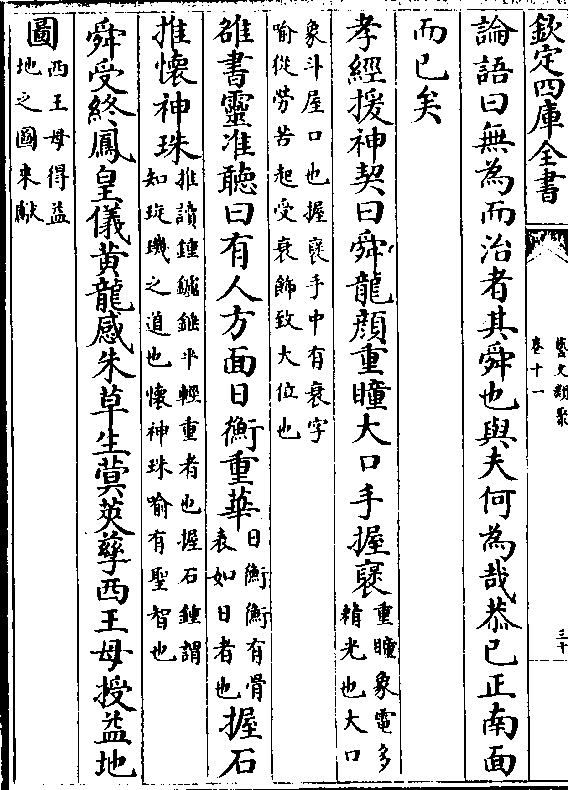 欽定四庫全書
藝文類聚
卷十一
三十
論語曰無為而治者其舜也與夫何為哉恭已正南面
而已矣
孝經援神契曰舜龍顔重瞳大口手握襃
重瞳象電多
精光也大口
象斗屋口也握襃手中有衰字
喻從勞苦起受衰飾致大位也
雒書靈准聽曰有人方面日衡重華
日衡衡有骨
表如日者也
握石
推懷神珠
推讀鍾鍼錐平輕重者也握石鍾謂
知琁璣之道也懷神珠喻有聖智也
舜受終鳳皇儀黄龍感朱草生蓂莢孳西王母授益地
圖
西王母得益
地之圖来獻